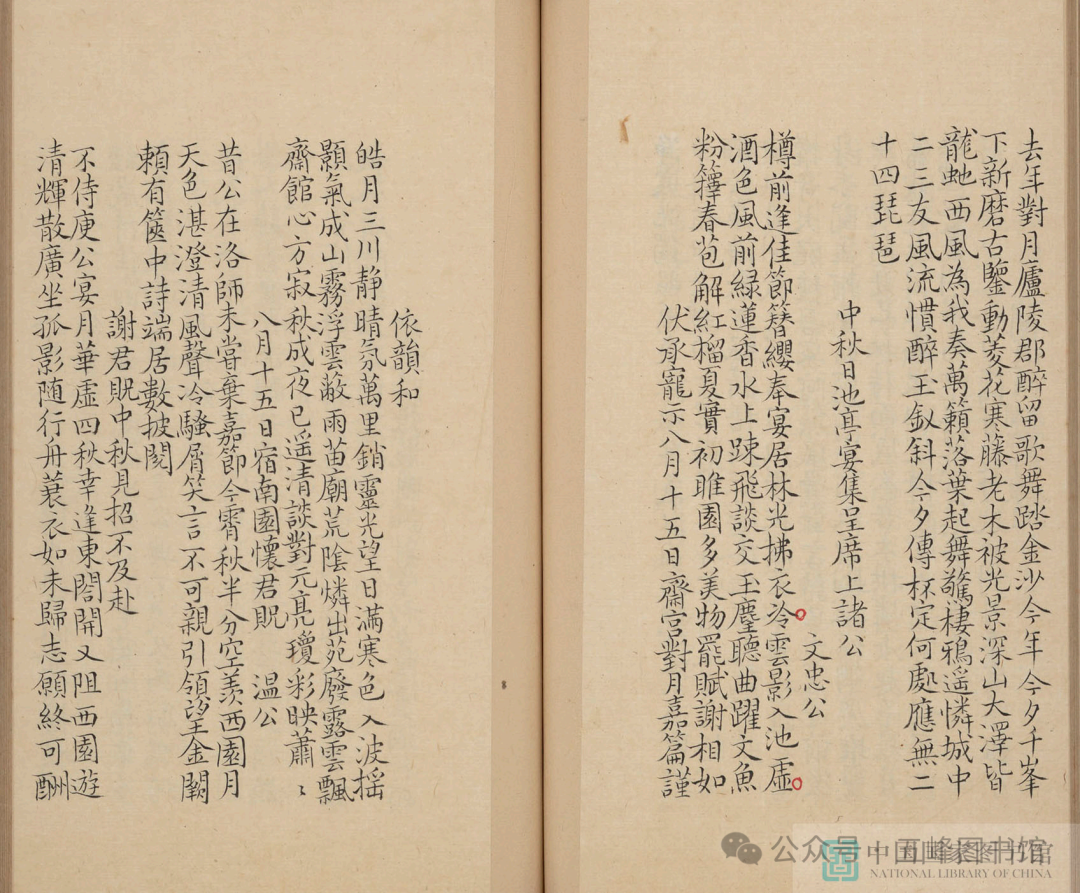 去年對月廬陵郡醉留歌舞踏金沙今年今夕千峯
下新磨古鑒動菱花寒藤老木被光景深山大澤皆
龍虵西風為我奏萬籟落葉起舞驚棲鴉遥憐城中
二三友風流慣醉玉釵斜今夕傳杯定何處應無二
十四琵琶
中秋日池亭宴集呈席上諸公
文忠公
樽前逢佳節簪纓奉宴居林光拂衣冷雲影入池虛
酒色風前緑蓮香水上踈飛談交玉麈聽曲躍文魚
粉籜春苞解紅榴夏實初睢園多美物罷賦謝相如
伏承寵示八月十五日齋宮對月嘉篇謹
依韻和
皓月三川静晴氛萬里銷靈光望日满寒色入波揺
顥氣成山霧浮雲敝雨苗廟荒陰燐出苑廢露雲飄
齋館心方寂秋成夜已遥清談對元亮瓊彩映蕭〻
八月十五日宿南園懷君貺 温公
昔公在洛師未嘗棄嘉節今霄秋半分空羨西園月
天色湛澄清風聲冷騷屑笑言不可親引領望金闕
頼有篋中詩端居數披閱
謝君貺中秋見招不及赴
不侍庾公宴月華虚四秋幸逢東閤開又阻西園遊
清輝散廣坐孤影随行舟蓑衣如未歸志願終可酬
公众号
中国国家图书馆
NATIONAL LIBRARY OF CHINA